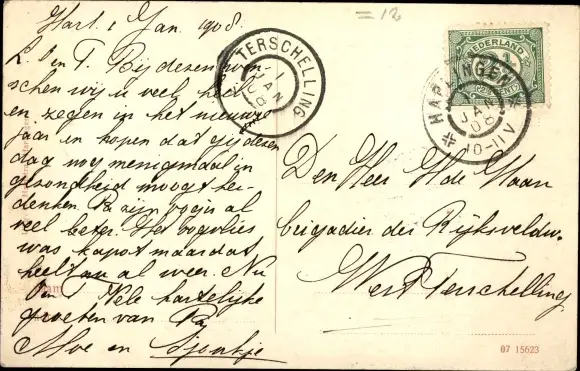 Harl. 1 Jan. 1908.
L. T en T. Bij dezen wen-
schen wij u veel heil
en zegen in het nieuwe
jaar en hopen dat gij dezen
dag nog menigmaal in
gezondheid moogt her-
denken. Pa zijn oogje is al
veel beter. Het oogvlies
was kapot maar dat
heelt nu al weer. Nu
Hele hartelijke
groeten van Pa
Moe en Sjoukje
TERSCHELLING
1
JAN
08
= 12
NEDERLAND
HARLINGEN
JAN
08
10-11V
Den Heer H de Haan
brigadier der Rijksveldw.
West Terschelling
07 15623